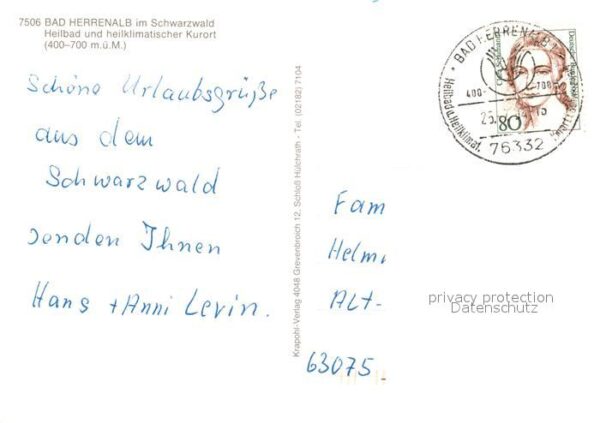 7506 BAD HERRENALB im Schwarzwald
Heilbad und heilklimatischer Kurort
(400–700 m.ü.M.)
Schöne Urlaubsgrüße
aus dem
Schwarzwald
senden Ihnen
Hans + Anni Levin.
Krapohl-Verlag 4048 Grevenbroich 12, Schloß Hülchrath · Tel. (02182) 7104
BAD HERRENALB
400-
700
25.
80
Heilbad u. Heilklimat. Kurort
76332
Fam
Helm
Alt-
63075
privacy protection
Datenschutz